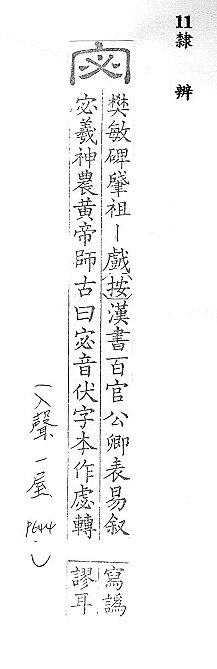 11
隸辨
宓
樊敏碑肇祖丨戲按漢書百官公卿表易叙
宓羲神農黃帝師古曰宓音伏字本作虙轉
寫譌
謬耳
(入聲一屋 P644.)